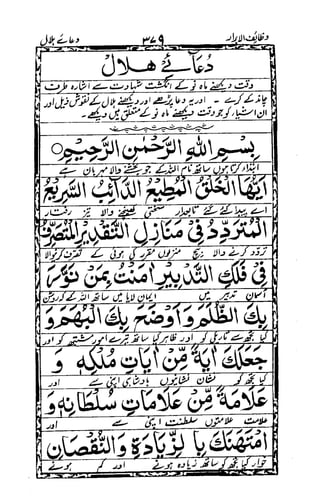 وظائف الابرار ۳۷۹ دعائے ہلال
دُعَائے هلال
وقت دیکھنے ماہ نو کے انگشت شہادت سے اشارہ طرف
چاند کے کرے ۔ اور یہ دعا پڑھے اور دیکھنے ہلال کے نقوش ذیل اور
ان اشیاء کو جو وقت دیکھنے ماہ نو کے متعلق ہیں دیکھے ۔
بِسْمِ اللهِ الرَّحْمٰنِ الرَّحِيْمِ
ابتدا کرتا ہوں ساتھ نام اللہ کے جو بخشنے والا مہربان ہے
اَيُّهَا الْخَلْقُ الْمُطِيْعُ الدَّائِبُ السَّرِيْعُ
اے پیدا کئے گئے تابعدار سختی کھینچنے والا تیز رفتار
الْمُتَرَدِّدُ فِیْ مَنَازِلِ التَّقْدِيْرِ الْمُتَصَرِّفُ
تردد کرنے والا بیچ منزلوں مقرر کی ہوئی کے تصرف کرنوالا
فِیْ فَلَكِ التَّدْبِيْرِ اٰمَنْتُ بِمَنْ نَوَّرَ
آسمان تدبیر میں ایمان لایا میں ساتھ اللہ کے کہ روشن
بِكَ الظُّلَمَ وَاَوْضَحَ بِكَ الْبُهَمَ وَ
کیا تجھ سے تاریکی کو اور ظاہر کیا ساتھ تیرے امور مشتبہ کو اور
جَعَلَكَ اٰيَةً مِّنْ اٰيَاتِ مُلْكِهٖ وَ
کیا تجھ کو نشان نشانیوں بادشاہی اپنی سے اور
عَلَامَةً مِّنْ عَلَامَاتِ سُلْطَانِهٖ وَ
علامت علامتوں سلطنت اپنی سے اور
امْتَهَنَكَ بِالزِّيَادَةِ وَالنُّقْصَانِ
خوار کیا تجھ کو ساتھ زیادہ ہونے اور کم ہونے